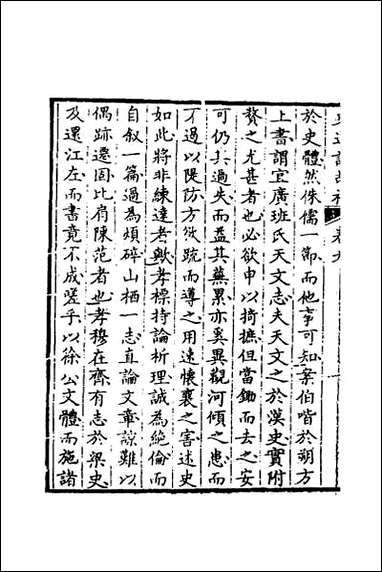 於史體然侏儒一節而他事可知案伯喈於朔方
上書謂宜廣班氏天文志夫天文之於漢史實附
贅之尤甚者也必欲申以掎摭但當鋤而去之安
可仍其過失而益其蕪累亦奚異觀河傾之患而
不遏以隄防方欲疏而導之用速懷襄之害述史
如此將非練達者歟孝標持論析理誠為絶倫而
自叙一篇過為煩碎山栖一志直論文章諒難以
偶跡遷固比肩陳范者也孝穆在齊有志於梁史
及還江左而書竟不成嗟乎以徐公文體而施諸